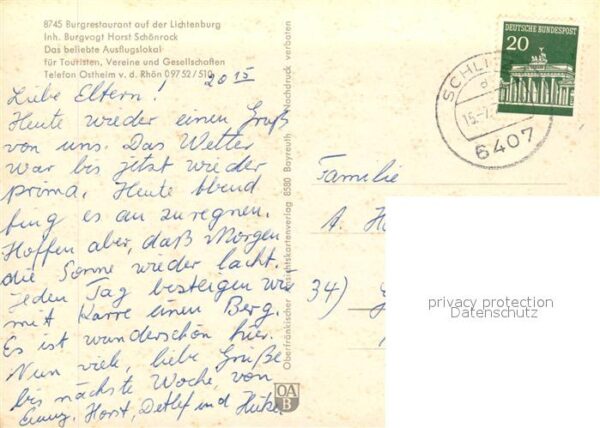 8745 Burgrestaurant auf der Lichtenburg
Inh. Burgvogt Horst Schönrock
Das beliebte Ausflugslokal
für Touristen, Vereine und Gesellschaften
Telefon Ostheim v. d. Rhön 09752/510
2015
Liebe Eltern!
Heute wieder einen Gruß
von uns. Das Wetter
war bis jetzt wieder
prima. Heute Abend
fing es an zu regnen.
Hoffen aber, daß Morgen
die Sonne wieder lacht.
Jeden Tag besteigen wir
mit Karre einen Berg.
Es ist wunderschön hier.
Nun viele, liebe Grüße
bis nächste Woche, von
Horst, Detlef und
Oberfränkischer Ansichtskartenverlag 8580 Bayreuth Nachdruck verboten
OA
B
DEUTSCHE BUNDESPOST
20
6407
Familie
A.
34)
privacy protection
Datenschutz